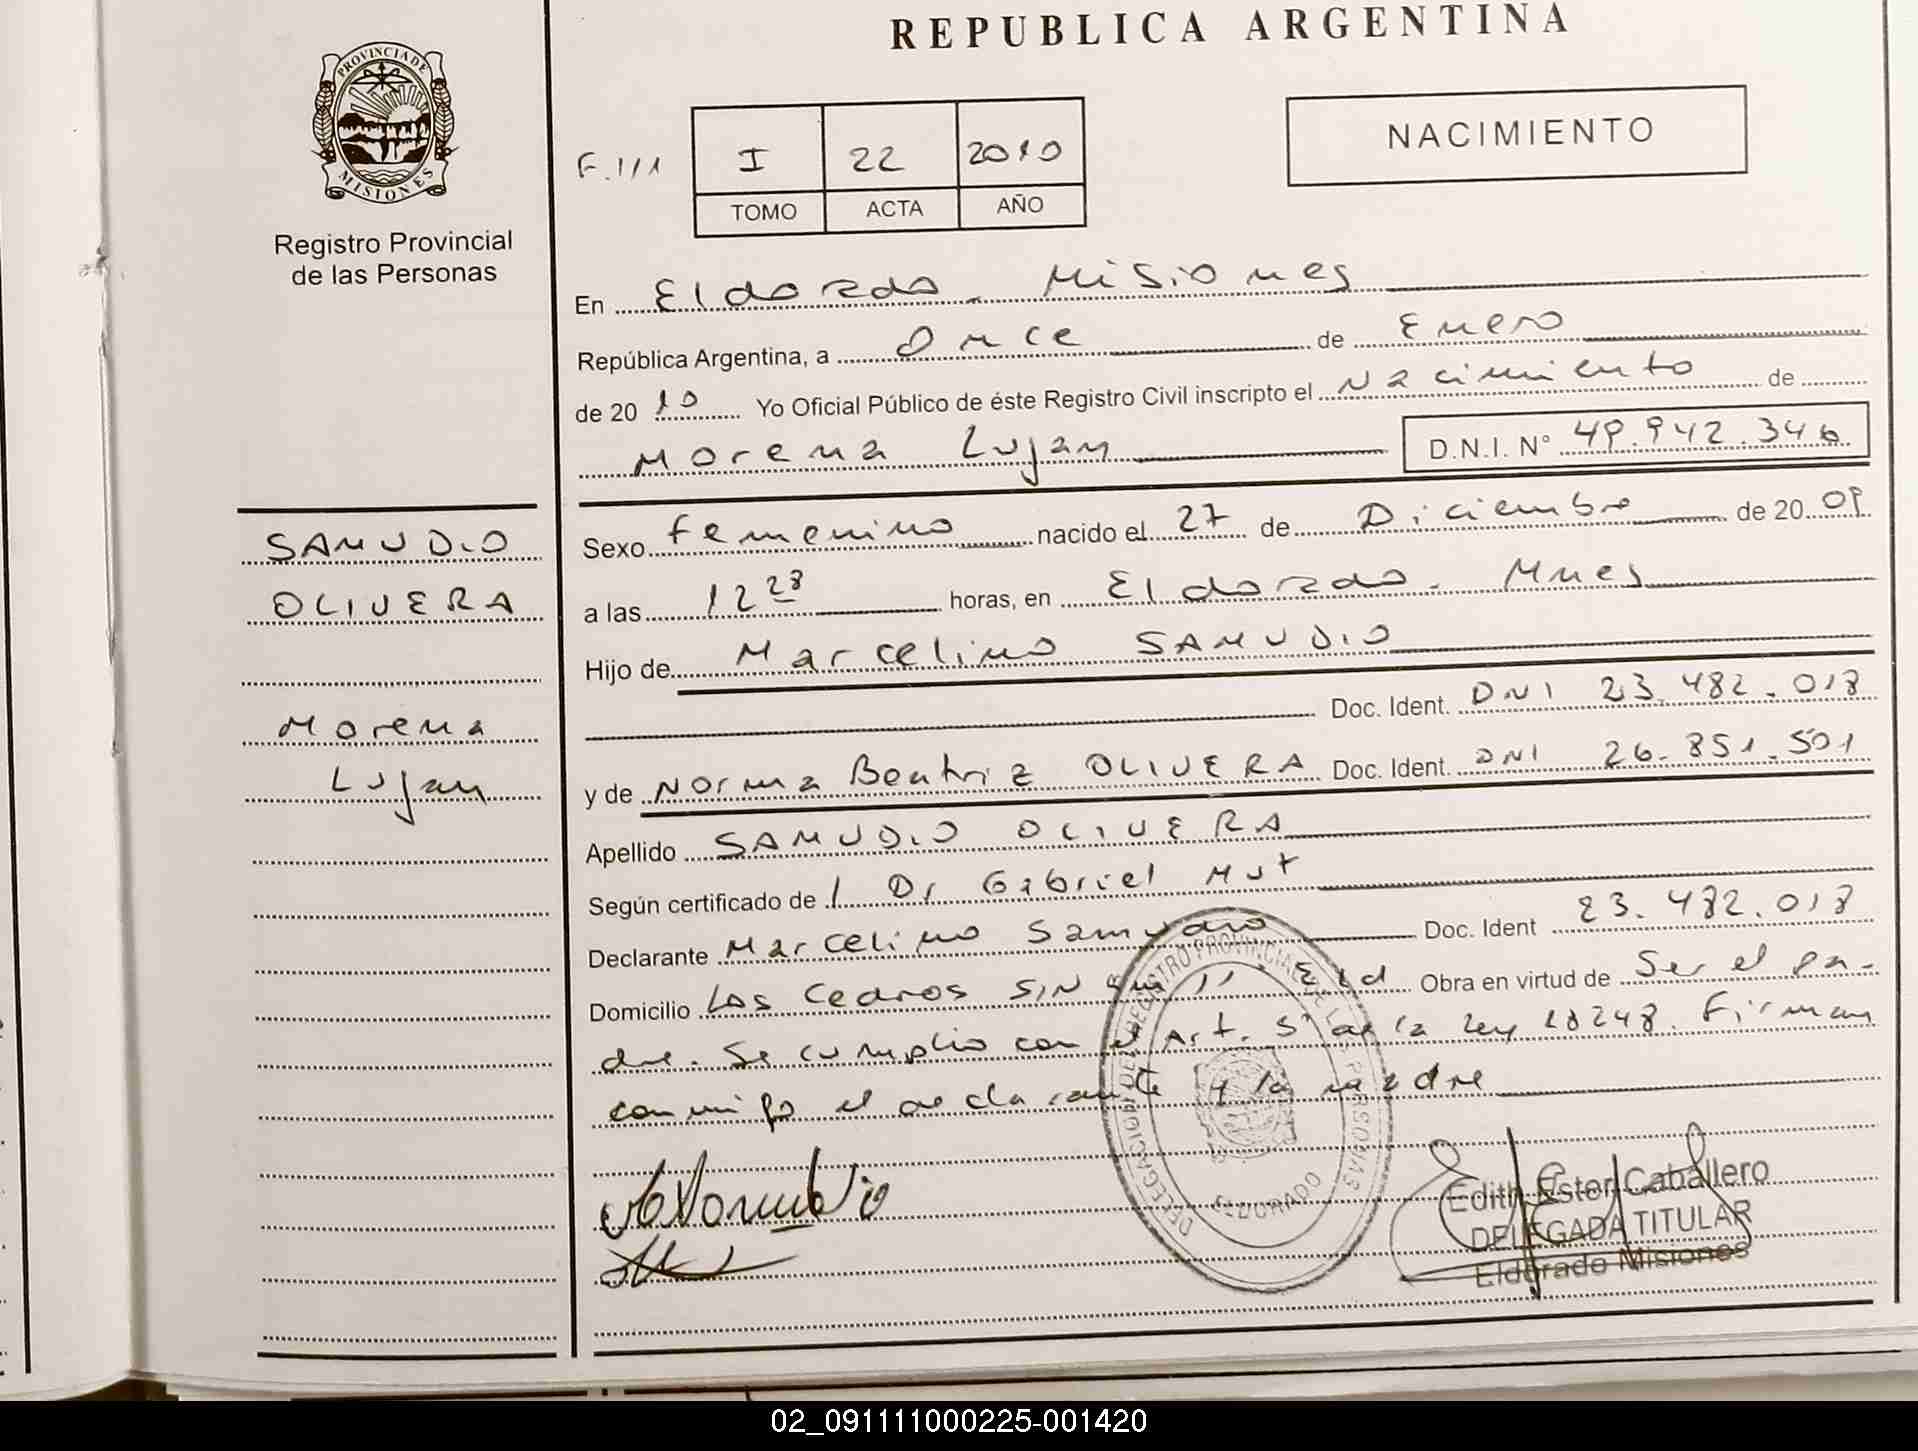 REPUBLICA ARGENTINA
PROVINCIA DE
MISIONES
Registro Provincial
de las Personas
NACIMIENTO
F. 111
I 22 2010
TOMO ACTA AÑO
En Eldorado. Misiones
República Argentina, a Once de Enero
de 2010 Yo Oficial Público de éste Registro Civil inscripto el Nacimiento de
Morena Lujan D.N.I. N° 49.942.346
SAMUDIO
OLIVERA
Morena
Lujan
Sexo femenino nacido el 27 de Diciembre de 2009
a las 12 28 horas, en Eldorado. Mnes
Hijo de Marcelino SAMUDIO
Doc. Ident. DNI 23.482.018
y de Norma Beatriz OLIVERA Doc. Ident. DNI 26.851.501
Apellido SAMUDIO OLIVERA
Según certificado de / Dr Gabriel Mut
Declarante Marcelino Samudio Doc. Ident 23.482.018
Domicilio Los Cedros S/N Km 11. Eld Obra en virtud de Ser el pa-
dre. Se cumplio con el Art. 5° de la ley 18248. Firman
conmigo el declarante y la madre
DELEGACION DEL REGISTRO PROVINCIAL DE LAS PERSONAS
ELDORADO
Edith Ester Caballero
DELEGADA TITULAR
Eldorado Misiones
02_091111000225-001420